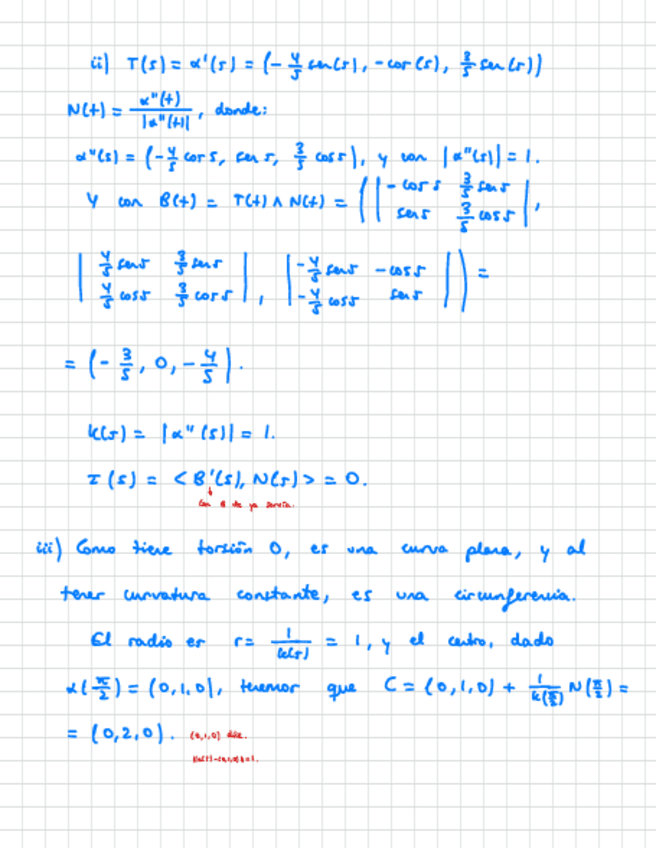 ii) T(s) = α'(s) = (-4/5 sen(s), -cos(s), 3/5 sen(s))
N(t) = α''(t) / |α''(t)|, donde:
α''(s) = (-4/5 cos s, sen s, 3/5 cos s), y con |α''(s)| = 1.
Y con B(t) = T(t) ∧ N(t) = ( | -cos s 3/5 sen s |
| sen s 3/5 cos s |,
| 4/5 sen s 3/5 sen s | | -4/5 sen s -cos s | ) =
| 4/5 cos s 3/5 cos s |, | -4/5 cos s sen s |
= (-3/5, 0, -4/5).
k(s) = |α''(s)| = 1.
τ(s) = <B'(s), N(s)> = 0.
↓
iii) Como tiene torsión 0, es una curva plana, y al
tener curvatura constante, es una circunferencia.
El radio es r = 1/k(s) = 1, y el centro, dado
α(π/2) = (0,1,0), tenemos que C = (0,1,0) + 1/k(π/2) N(π/2) =
= (0,2,0). (0,1,0)